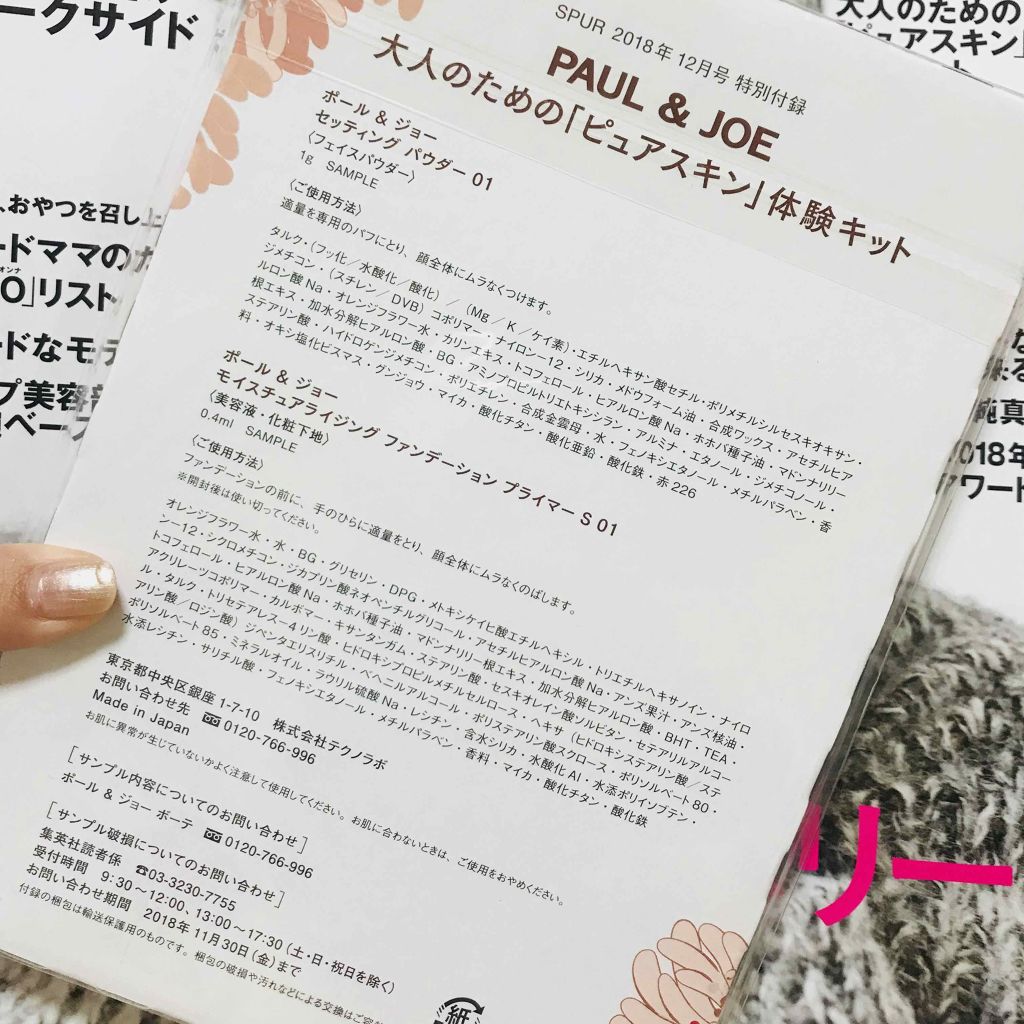 ークサイド
大人のための
ピュアスキン」
SPUR 2018年 12月号 特別付録
PAUL & JOE
大人のための「ピュアスキン」体験キット
ポール & ジョー
セッティング パウダー 01
〈フェイスパウダー〉
1g SAMPLE
〈ご使用方法〉
適量を専用のパフにとり、顔全体にムラなくつけます。
タルク・(フッ化／水酸化／酸化)／(Mg／K／ケイ素)・エチルヘキサン酸セチル・ポリメチルシルセスキオキサン・
ジメチコン・(スチレン／DVB)コポリマー・ナイロン－12・シリカ・メドウフォーム油・合成ワックス・アセチルヒア
ルロン酸Na・オレンジフラワー水・カリンエキス・トコフェロール・ヒアルロン酸Na・ホホバ種子油・マドンナリリー
根エキス・加水分解ヒアルロン酸・BG・アミノプロピルトリエトキシシラン・アルミナ・エタノール・ジメチコノール・
ステアリン酸・ハイドロゲンジメチコン・ポリエチレン・合成金雲母・水・フェノキシエタノール・メチルパラベン・香
料・オキシ塩化ビスマス・グンジョウ・マイカ・酸化チタン・酸化亜鉛・酸化鉄・赤226
ポール & ジョー
モイスチュアライジング ファンデーション プライマー S 01
〈美容液・化粧下地〉
0.4ml SAMPLE
〈ご使用方法〉
ファンデーションの前に、手のひらに適量をとり、顔全体にムラなくのばします。
※開封後は使い切ってください。
オレンジフラワー水・水・BG・グリセリン・DPG・メトキシケイヒ酸エチルヘキシル・トリエチルヘキサノイン・ナイロ
ン－12・シクロメチコン・ジカプリン酸ネオペンチルグリコール・アセチルヒアルロン酸Na・アンズ果汁・アンズ核油・
トコフェロール・ヒアルロン酸Na・ホホバ種子油・マドンナリリー根エキス・加水分解ヒアルロン酸・BHT・TEA・
アクリレーツコポリマー・カルボマー・キサンタンガム・ステアリン酸・セスキオレイン酸ソルビタン・セテアリルアルコー
ル・タルク・トリセテアレス－4リン酸・ヒドロキシプロピルメチルセルロース・ヘキサ(ヒドロキシステアリン酸／ステ
アリン酸／ロジン酸)ジペンタエリスリチル・ベヘニルアルコール・ポリステアリン酸スクロース・ポリソルベート80・
ポリソルベート85・ミネラルオイル・ラウリル硫酸Na・レシチン・含水シリカ・水酸化Al・水添ポリイソブテン・
水添レシチン・サリチル酸・フェノキシエタノール・メチルパラベン・香料・マイカ・酸化チタン・酸化鉄
東京都中央区銀座 1-7-10 株式会社テクノラボ
お問い合わせ先 0120-766-996
Made in Japan
お肌に異常が生じていないかよく注意して使用してください。お肌に合わないときは、ご使用をおやめください。
[サンプル内容についてのお問い合わせ]
ポール & ジョー ボーテ 0120-766-996
[サンプル破損についてのお問い合わせ]
集英社読者係 ☎03-3230-7755
受付時間 9:30～12:00、13:00～17:30(土・日・祝日を除く)
お問い合わせ期間 2018年11月30日(金)まで
付録の梱包は輸送保護用のものです。梱包の破損や汚れなどによる交換はご容
紙
、おやつを召し上
ードママのた
オンナ
O」リスト
ードなモデ
プ美容
ベー
純真
018年
ワード
リー